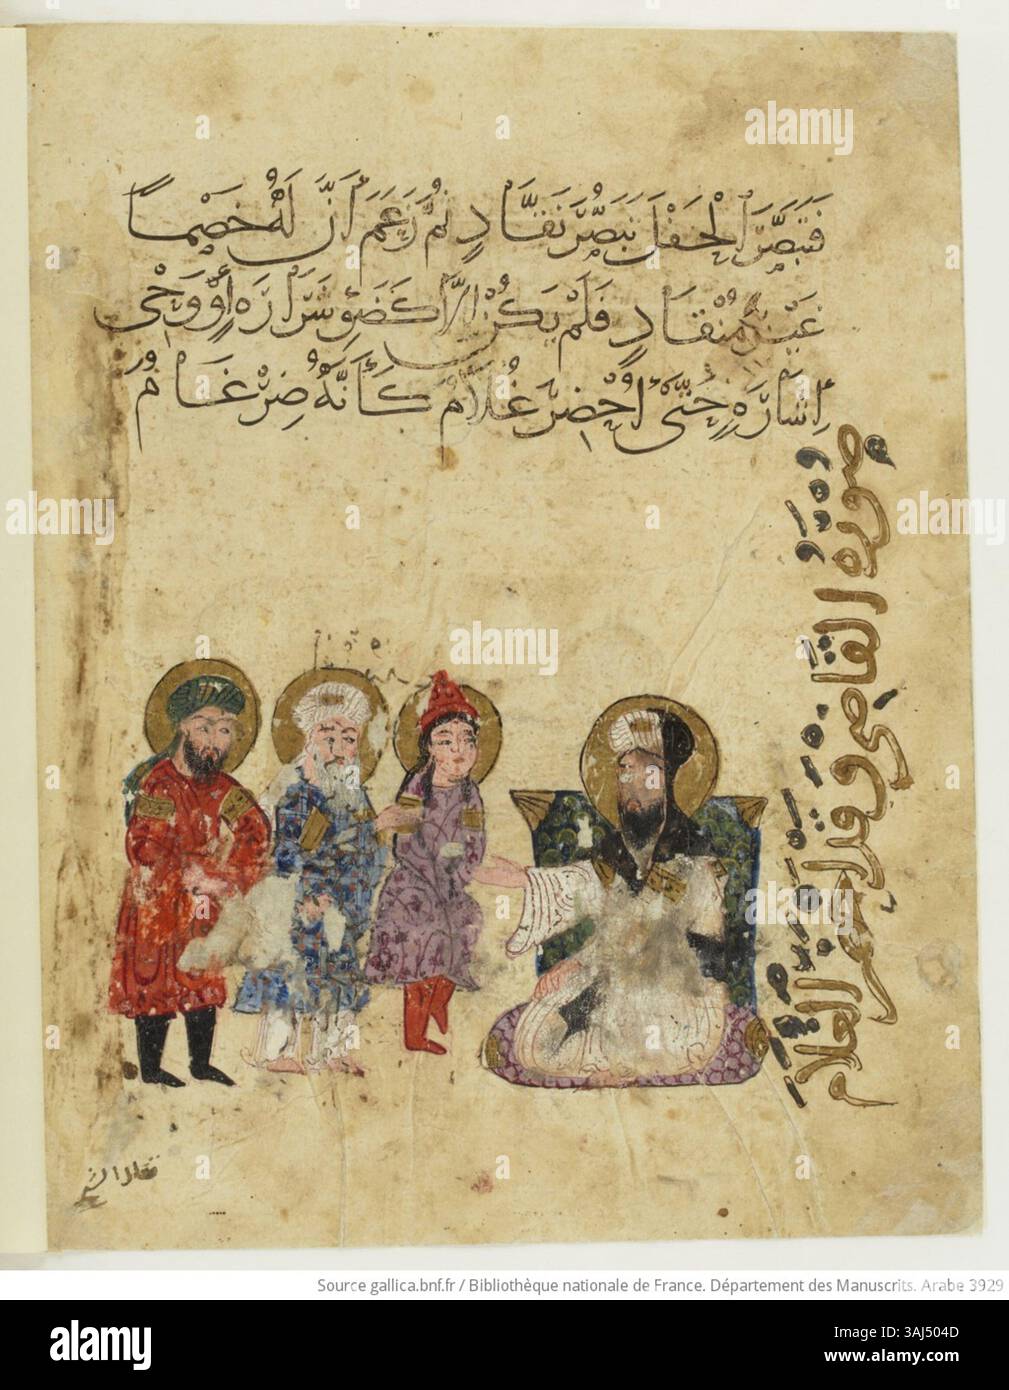 فَتَبَصَّرَ الْحَفْلَ تَبَصُّرَ نَقَّادٍ ثُمَّ زَعَمَ أَنَّ لَهُ خَصْمًا
غَيْرَ مُنْقَادٍ فَلَمْ يَكُنْ إِلَّا كَضَوْءِ شَرَارَةٍ أَوْ وَحْيِ
إِشَارَةٍ حَتَّى أُحْضِرَ غُلَامٌ كَأَنَّهُ ضِرْغَامٌ
صورة القاضي وقد احضر
الغلام
a alamy
Source gallica.bnf.fr / Bibliothèque nationale de France. Département des Manuscrits. Arabe 3929
alamy
Image ID: 2AJ504D
www.alamy.com